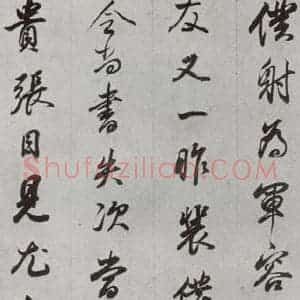 僕射為軍容
友又一昨裴僕
令尚書失次當
貴張目見尤
Shufaziliao.com